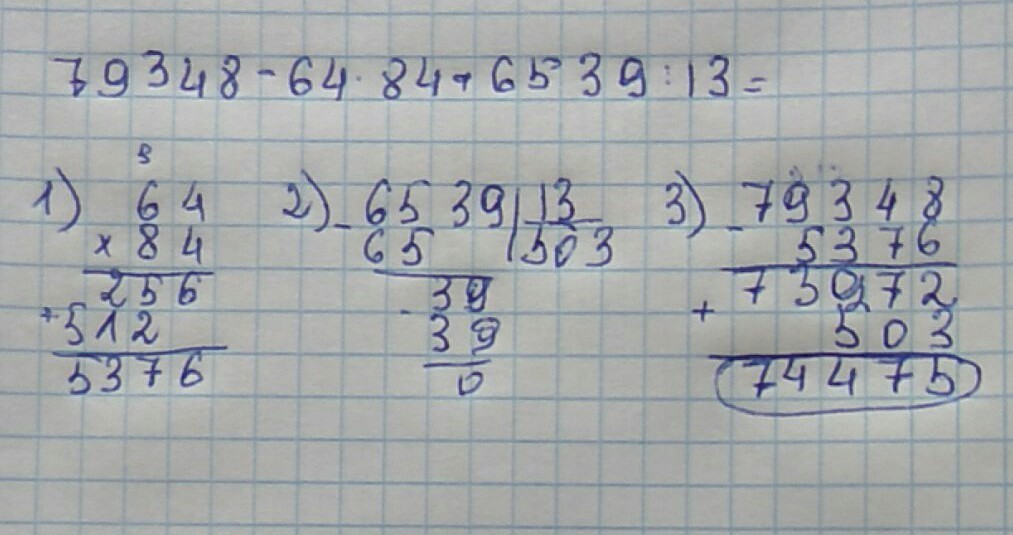 79348-64·84+6539:13=
1) 64
×84
256
+512
5376
2) -6539|13
65 |503
-39
39
0
3) -79348
5376
73972
+ 503
74475